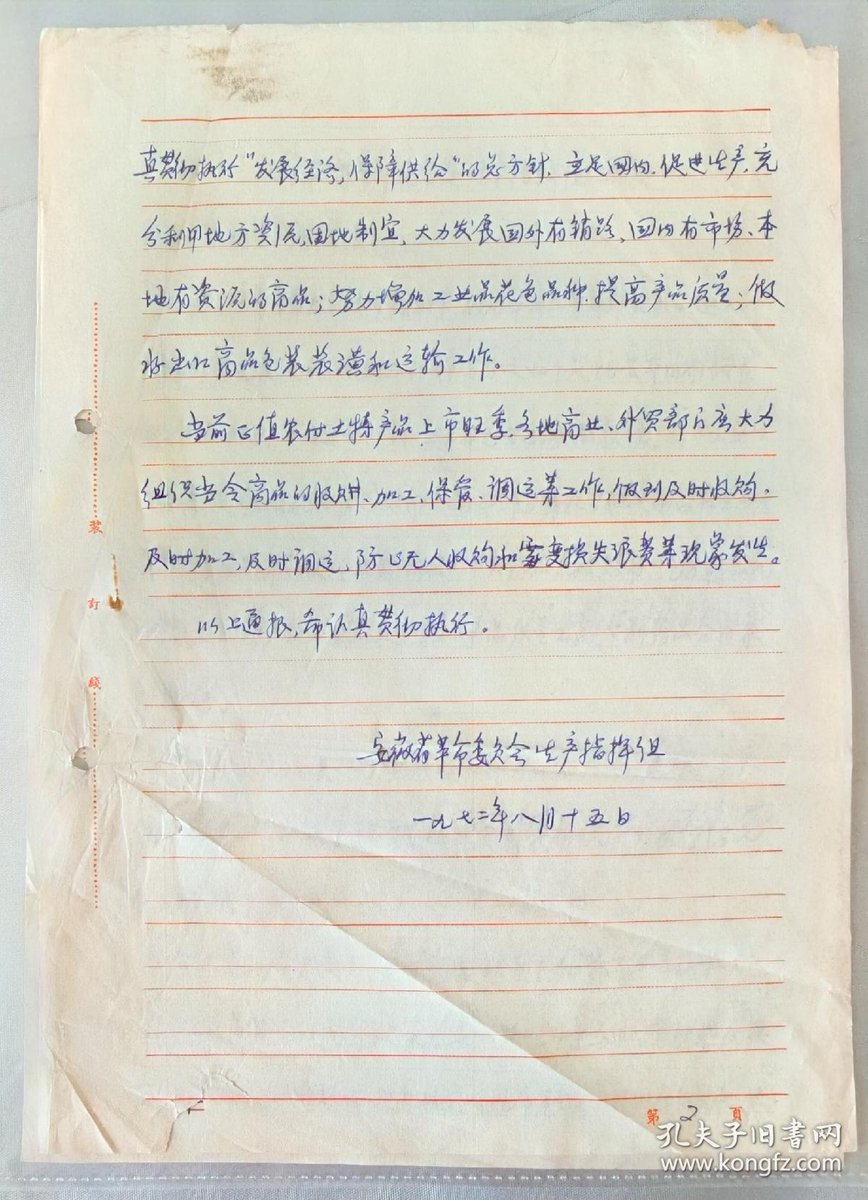 真贯彻执行“发展经济,保障供给”的总方针,立足国内,促进生产,充
分利用地方资源,因地制宜,大力发展国外有销路、国内有市场、本
地有资源的商品;努力增加工业品花色品种,提高产品质量;做
好出口商品包装装潢和运输工作。
当前正值农付土特产品上市旺季,各地商业、外贸部门应大力
组织当令商品的收购、加工、保管、调运等工作,做到及时收购、
及时加工,及时调运,防止无人收购和霉变损失浪费等现象发生。
以上通报,希认真贯彻执行。
安徽省革命委员会生产指挥组
一九七二年八月十五日
装
订
线
第2頁
孔夫子旧书网
www.kongfz.com